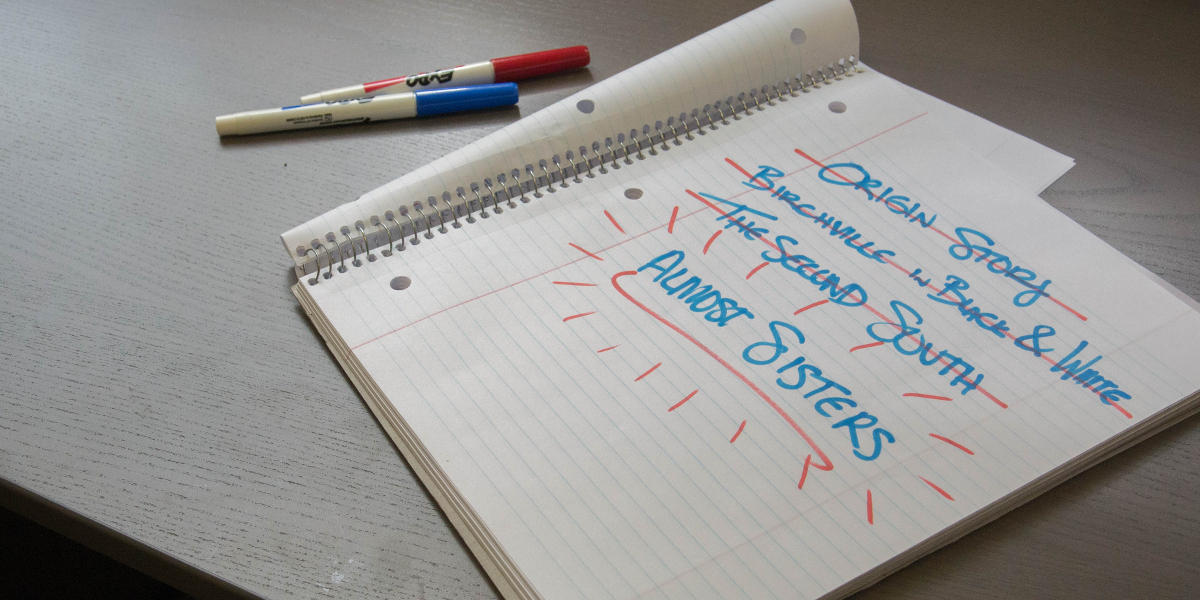 EXPO
EXPO
ORIGIN STORY
BIRCHVILLE IN BLACK & WHITE
THE SECOND SOUTH
ALMOST SISTERS